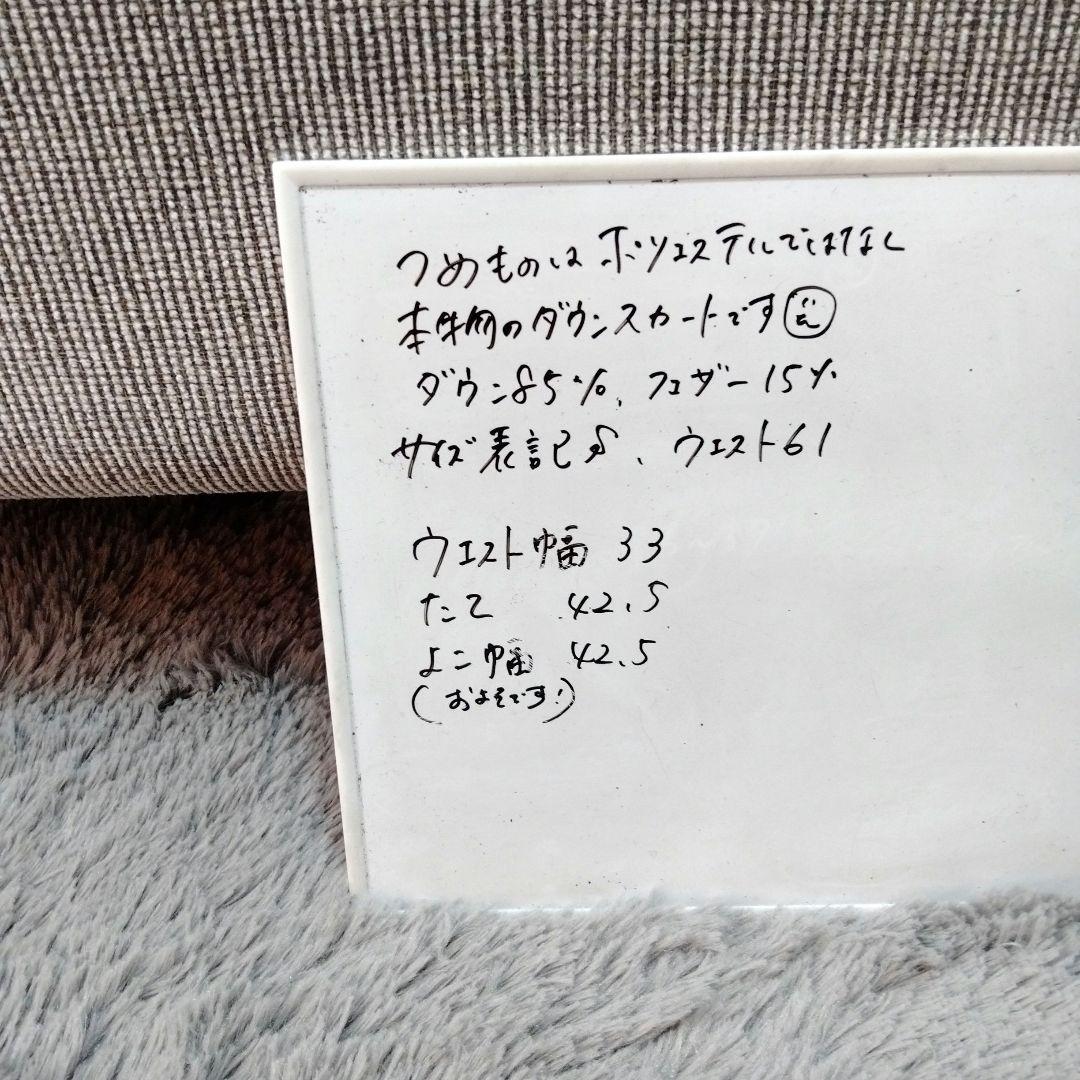 つめものはポリエステルではなく
本物のダウンスカートです
ダウン85%、フェザー15%
サイズ表記S、ウエスト61
ウエスト幅 33
たて 42.5
よこ幅 42.5
(およそです!)